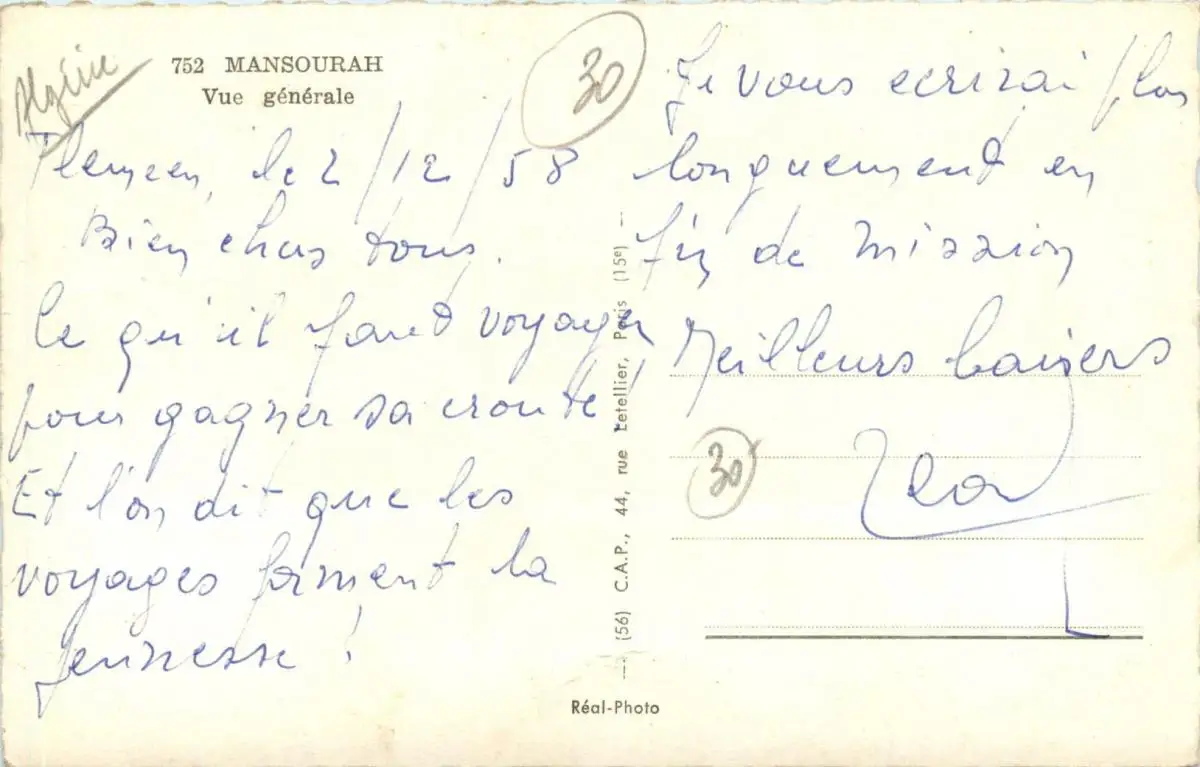 Algérie
752 MANSOURAH
Vue générale
30
Tlemcen, le 2/12/58
Bien chers tous.
Ce qu'il faut voyager
pour gagner sa croute !
Et l'on dit que les
voyages forment la
jeunesse !
Je vous ecrirai plus
longuement en
fin de mission
Meilleurs baisers
30
(56) C.A.P., 44, rue Letellier, Paris (15e)
Réal-Photo